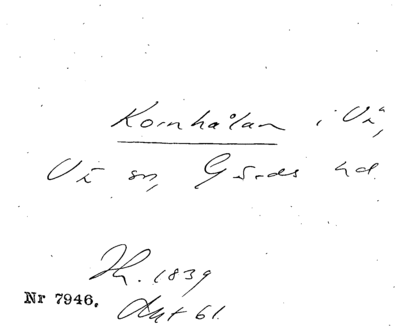 Kornhålan i Vä,
Vä sn, Gärds hd.
Th. 1839
Nr 7946. Akt 61.